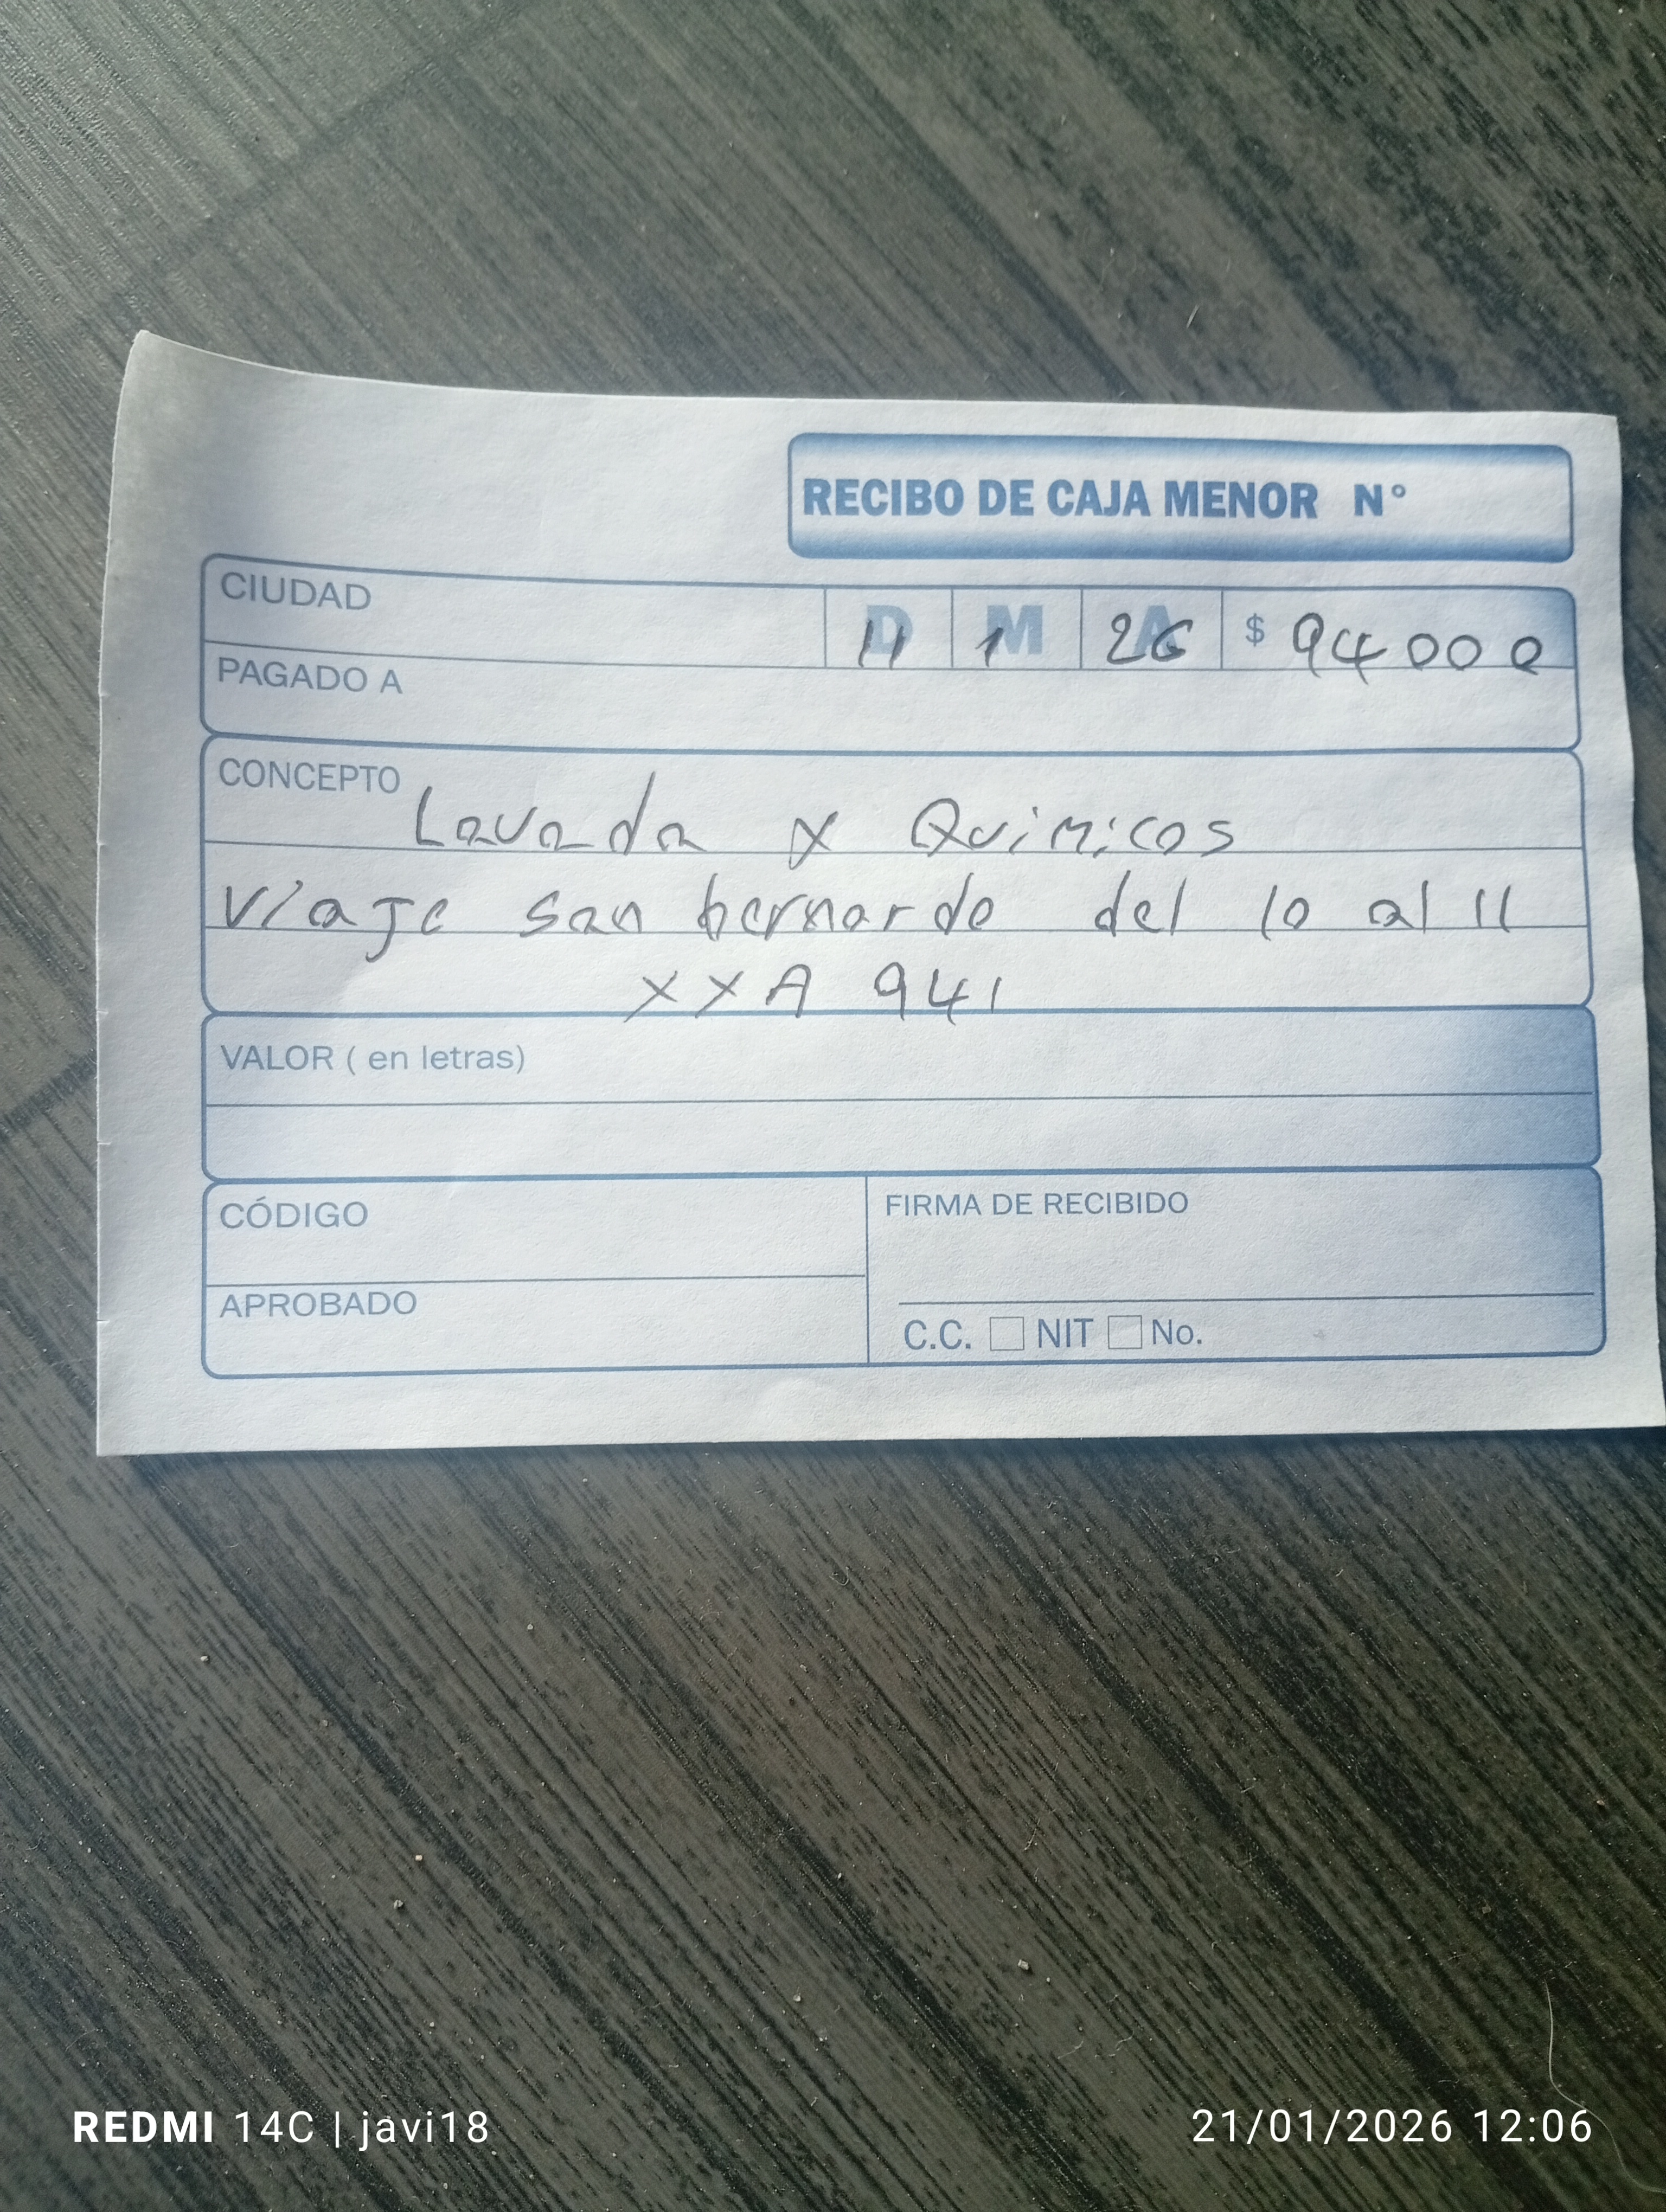 RECIBO DE CAJA MENOR N°
CIUDAD
D 11 M 1 A 26 $ 94000
PAGADO A
CONCEPTO Lavada x Quimicos
Viaje san bernardo del 10 al 11
XXA 941
VALOR ( en letras)
CÓDIGO
FIRMA DE RECIBIDO
APROBADO
C.C. NIT No.
REDMI 14C | javi18
21/01/2026 12:06